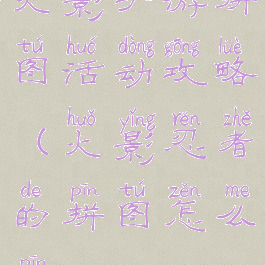 火影手游拼
tú huó dòng gōng lüè
图活动攻略
huǒ yǐng rěn zhě
（火影忍者
de pīn tú zěn me
的拼图怎么
pīn